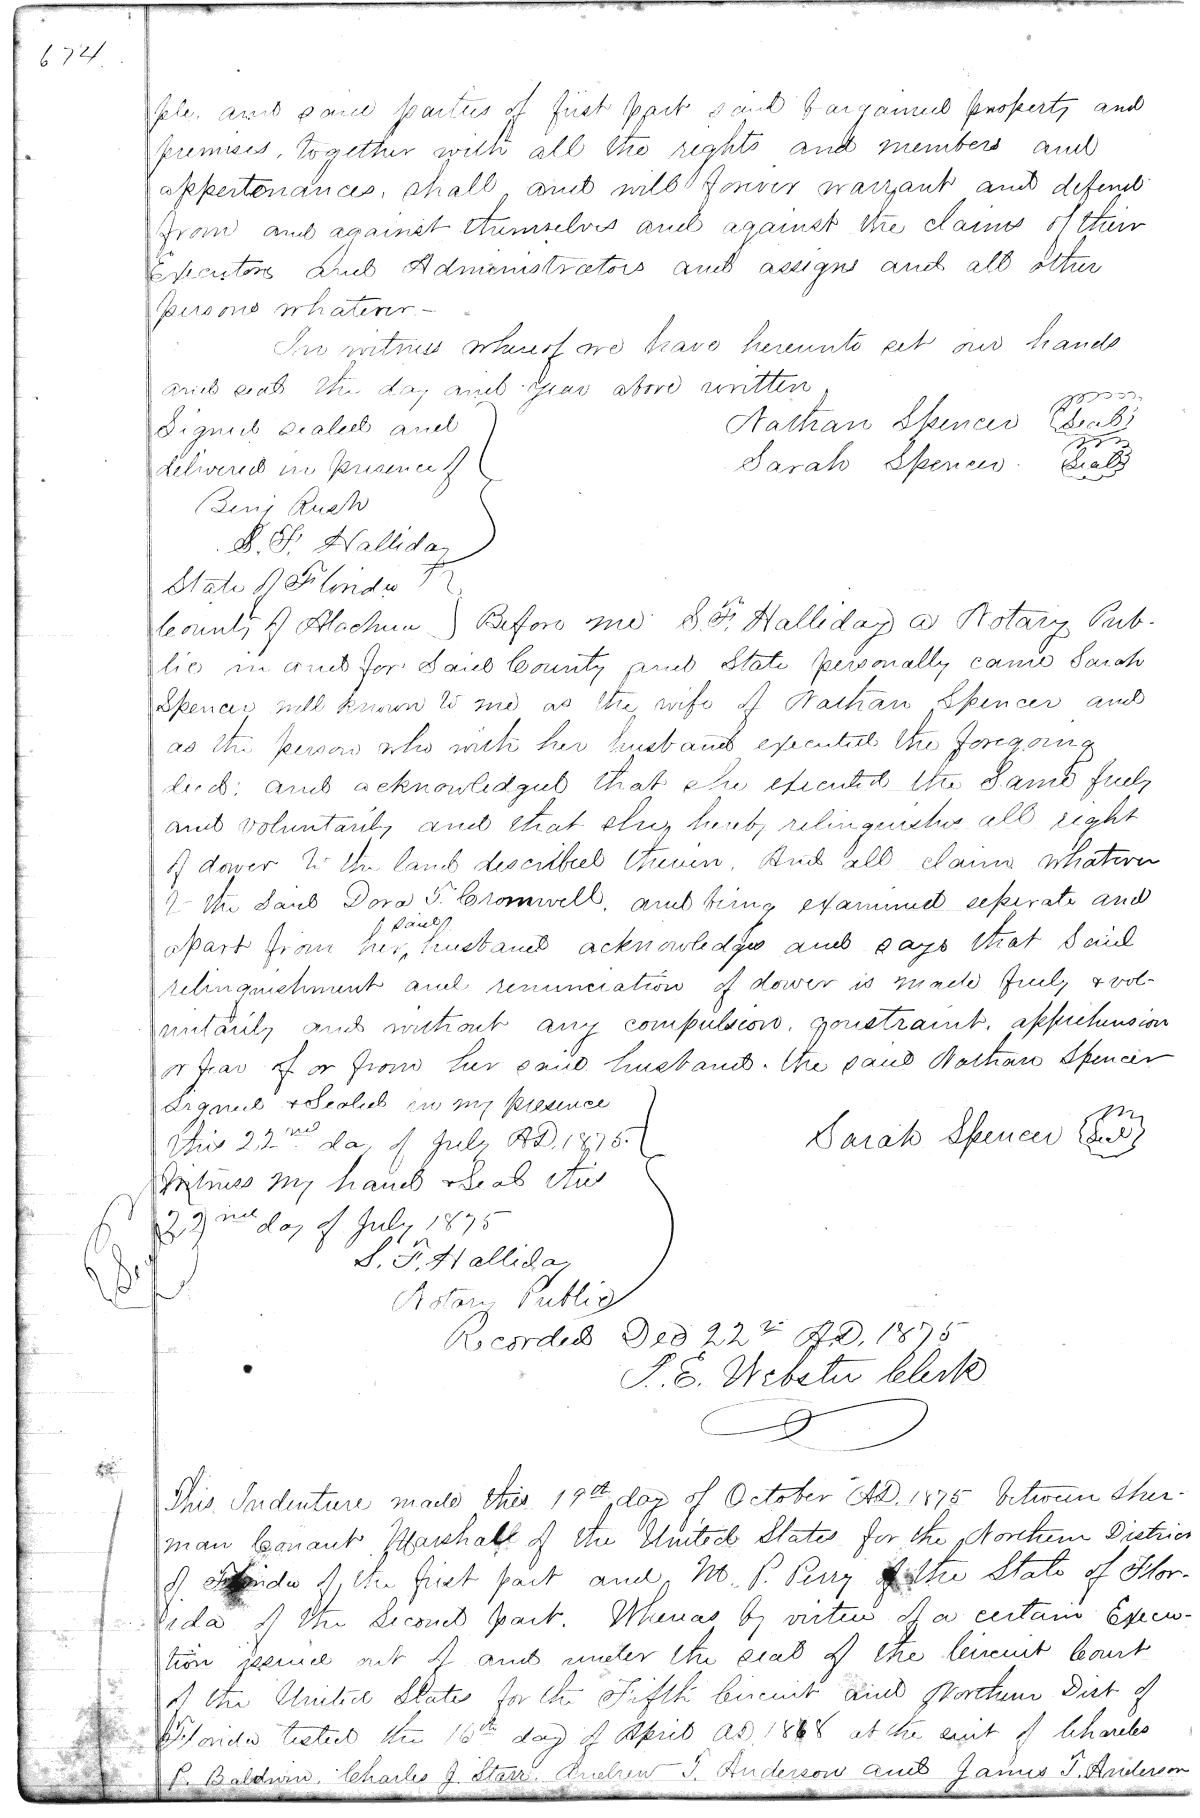 674.
ple. and said parties of first part said bargained property and
premises, together with all the rights and members and
appertenances, shall and will forever warrant and defend
from and against themselves and against the claims of their
Executors and Administrators and assigns and all other
persons whatever –
In witness whereof we have hereunto set our hands
and seals the day and year above written.
Signed sealed and
delivered in presence of
Nathan Spencer (Seal)
Sarah Spencer. (Seal)
Benj Rush
S. F. Halliday
State of Florida
County of Alachua } Before me S. F. Halliday a Notary Pub-
lic in and for Said County and State personally came Sarah
Spencer well known to me as the wife of Nathan Spencer and
as the person who with her husband executed the foregoing
deed; and acknowledged that she executed the Same freely
and voluntarily and that she hereby relinquishes all right
of dower to the land described therein. And all claim whatever
to the Said Dora T. Cromwell, and being examined seperate and
apart from her said husband acknowledges and says that Said
relinquishment and renunciation of dower is made freely & vol-
untarily and without any compulsion, constraint, apprehension
or fear of or from her said husband. the said Nathan Spencer
Signed & Sealed in my presence
this 22nd day of July AD. 1875.
Sarah Spencer (Seal)
Witness my hand & Seal this
22nd day of July 1875
S. F. Halliday
Notary Public
Recorded Dec 22d AD. 1875
J. E. Webster Clerk
This Indenture made this 19th day of October AD. 1875 between Sher-
man Conant Marshall of the United States for the Northern District
of Florida of the first part and M. P. Perry of the State of Flor-
ida of the Second part. Whereas by virtue of a certain Execu-
tion issued out of and under the seal of the Circuit Court
of the United States for the Fifth Circuit and Northern Dist of
Florida tested the 16th day of April AD 1868 at the suit of Charles
P. Baldwin, Charles J Starr, Andrew T. Anderson and James T. Anderson